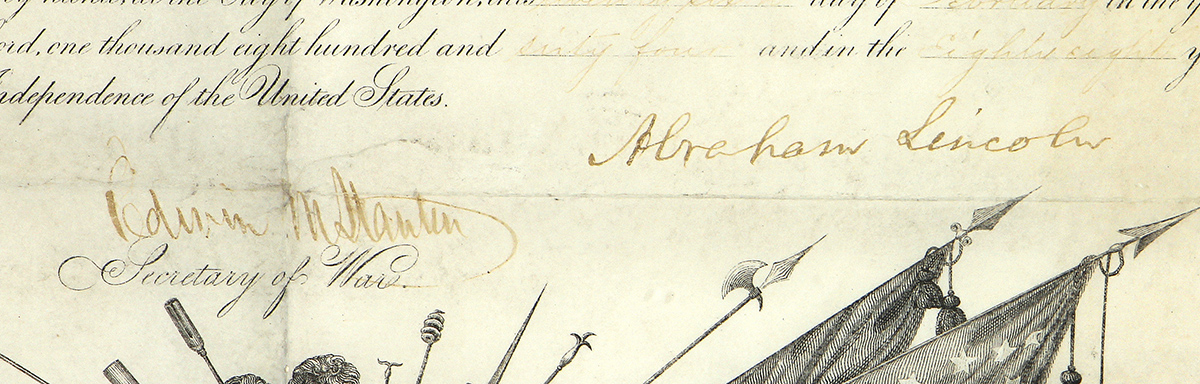 at the City of Washington, this day of February in the y
ord, one thousand eight hundred and sixty four and in the Eighty eight y
Independence of the United States.
Abraham Lincoln
Edwin M Stanton
Secretary of War.